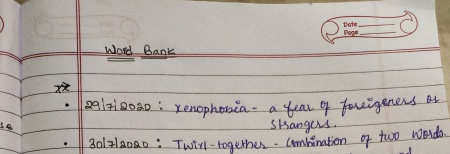 Date
Page
Word Bank
29/7/2020 : xenophobia - a fear of foreigeners or
strangers.
30/7/2020 : Twirl-together - Combination of two words